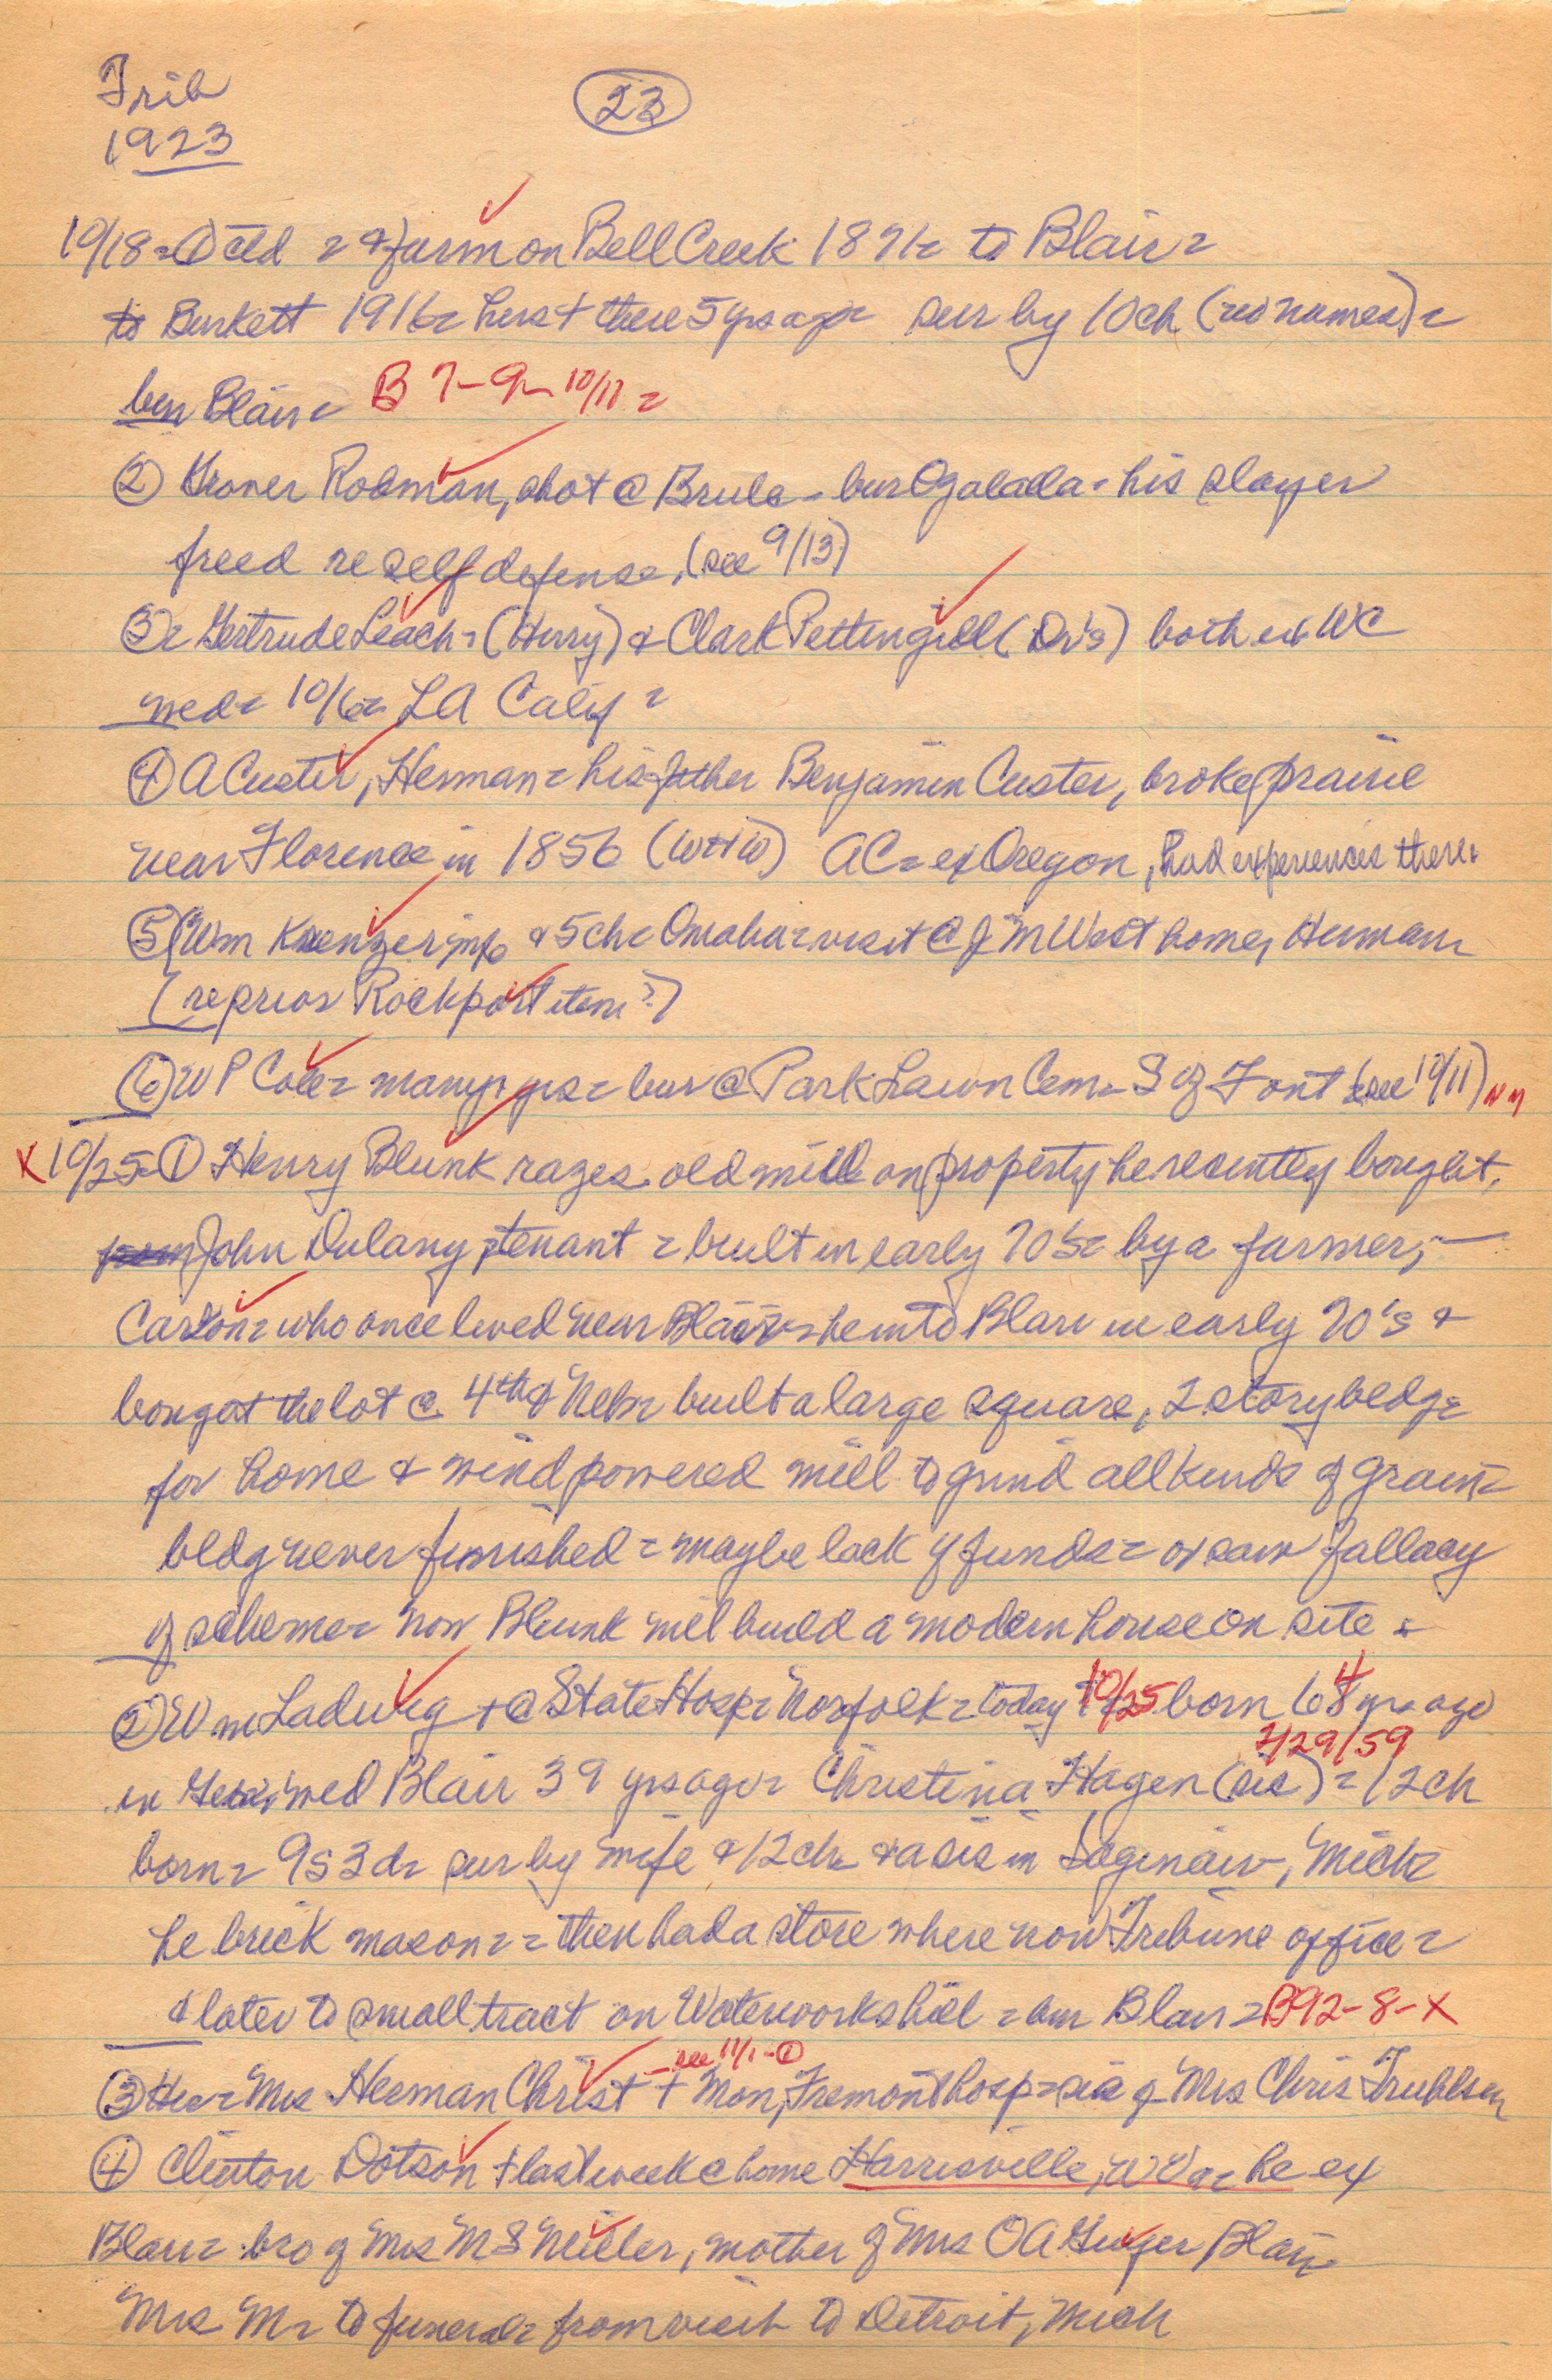 Trib
23
1923
10/18 = ① ctd = & farm on Bell Creek 1871 = to Blair =
to Burkett 1916 = hus + there 5 yrs ago = sur by 10 ch (no names) =
bur Blair = B 7-9- 10/11 =
② Grover Rodman, shot @ Brule - bur Ogalada = his slayer
freed re self defense, (see 9/13)
③ = Gertrude Leach = (Henry) & Clark Pettengill (Dr's) both ex WC
wed = 10/6 = LA Calif =
④ A Custer, Herman = his father Benjamin Custer, broke prairie
near Florence in 1856 AC = ex Oregon, had experiences there
⑤ Wm Kuenzer & 5 ch = Omaha = visit @ J M West home, Herman
(re prior Rockport item?)
⑥ W P Cole = many yrs = bur @ Park Lawn Cem = S of Font (see 10/11)
X 10/25 = ① Henry Blunk razes old mill on property he recently bought,
John Dulany, tenant = built in early 70's = by a farmer, -
Carlson = who once lived near Blair = he into Blair in early 70's &
bought the lot @ 4th & Nebr built a large square, 2 story bldg =
for home & wind powered mill to grind all kinds of grain =
bldg never finished = maybe lack of funds = or saw fallacy
of scheme = now Blunk will build a modern house on site =
② Wm Ladwig + @ State Hosp = Norfolk = today 10/25 born 64 yrs ago
4/29/59
in wed Blair 39 yrs ago = Christina Hagen (sic) = 12 ch
born = 9s 3d = sur by wife & 12 ch & a sis in Saginaw, Mich =
he brick mason = = then had a store where now Tribune office =
& later to small tract on Waterworks hill = bur Blair = B92-8-X
see 11/1-①
③ Her = Mrs Herman Christ + Mon, Fremont hosp = sis of Mrs Chris Truhlsen
④ Clinton Dotson + last week @ home Harrisville, W Va = he ex
Blair = bro of Mrs M S Miller, mother of Mrs O A Geiger Blair
Mrs M = to funeral = from visit to Detroit, Mich